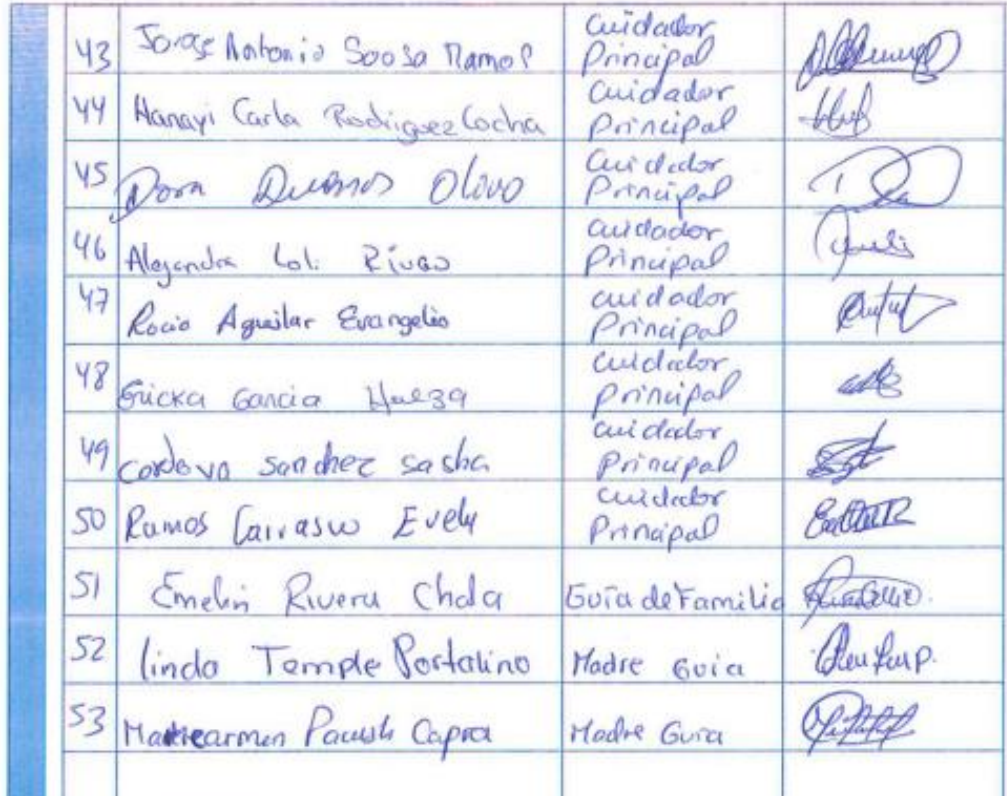 43 Jorge Antonio Soosa Ramos Cuidador Principal
44 Hanayi Carla Rodriguez Cocha Cuidador Principal
45 Dora Olivo Cuidador Principal
46 Alejandra Loli Rivas Cuidador Principal
47 Rocio Aguilar Evangelio Cuidador Principal
48 Ericka Garcia Cuidador Principal
49 Cordova Sanchez Sasha Cuidador Principal
50 Ramos Carrasco Evely Cuidador Principal
51 Emelin Rivera Guía de Familia
52 linda Temple Portalino Madre Guia
53 Maricarmen Capra Madre Guia